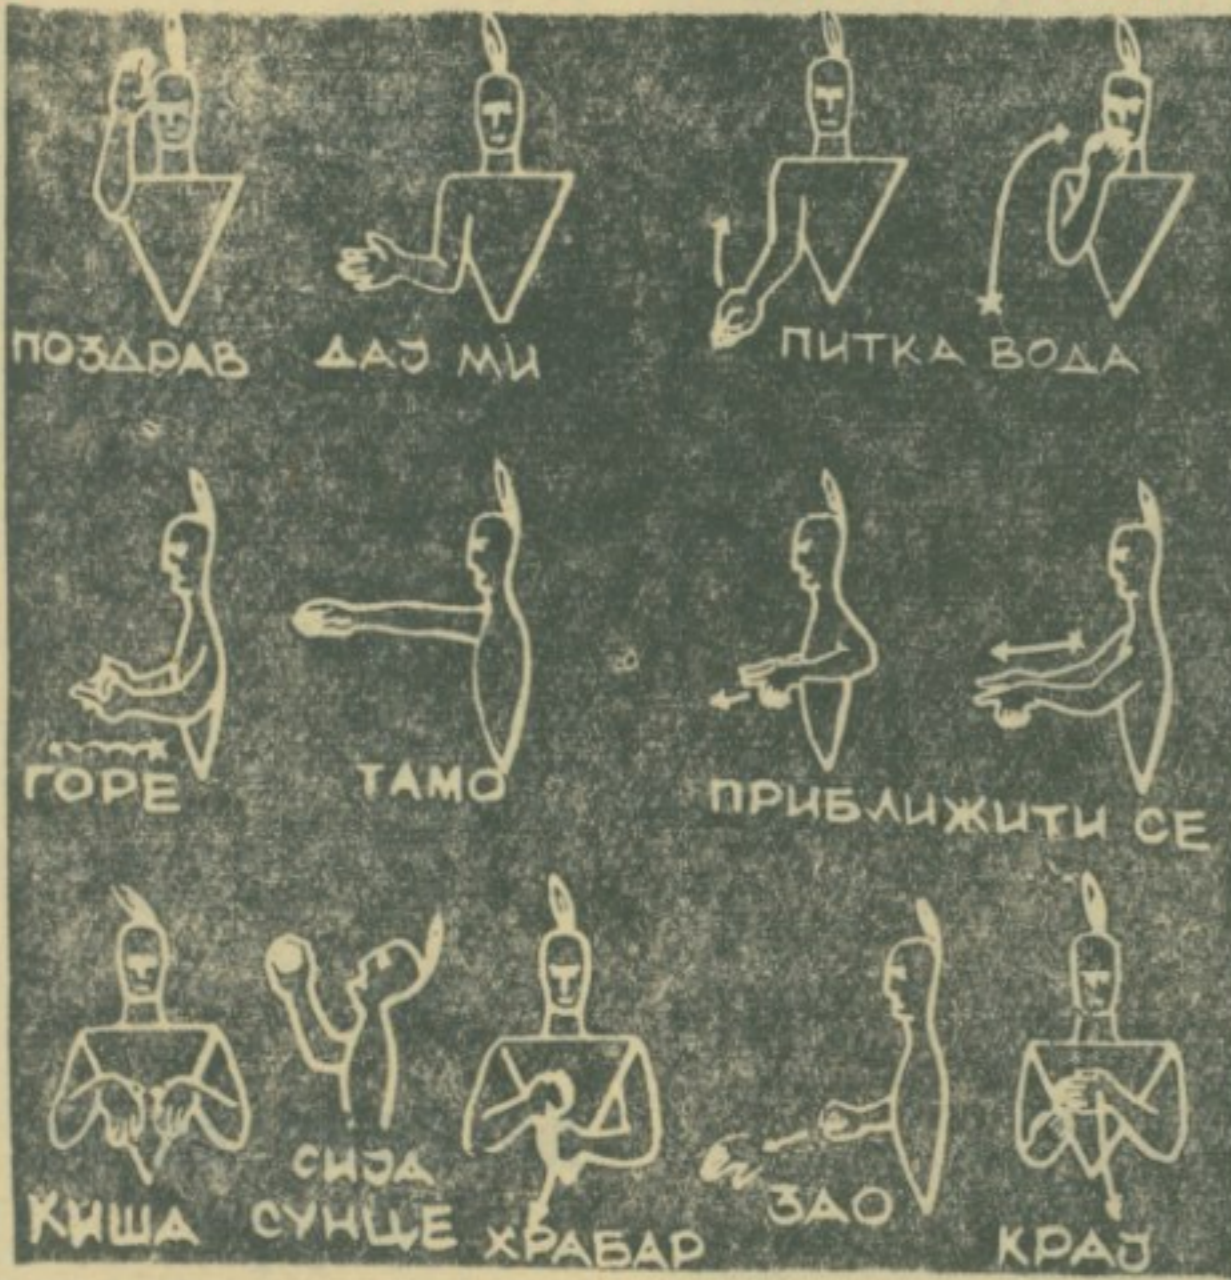 ПОЗДРАВ
ДАЈ МИ
ПИТКА ВОДА
ГОРЕ
ТАМО
ПРИБЛИЖИТИ СЕ
КИША
СИЈА
СУНЦЕ
ХРАБАР
ЗАО
КРАЈ